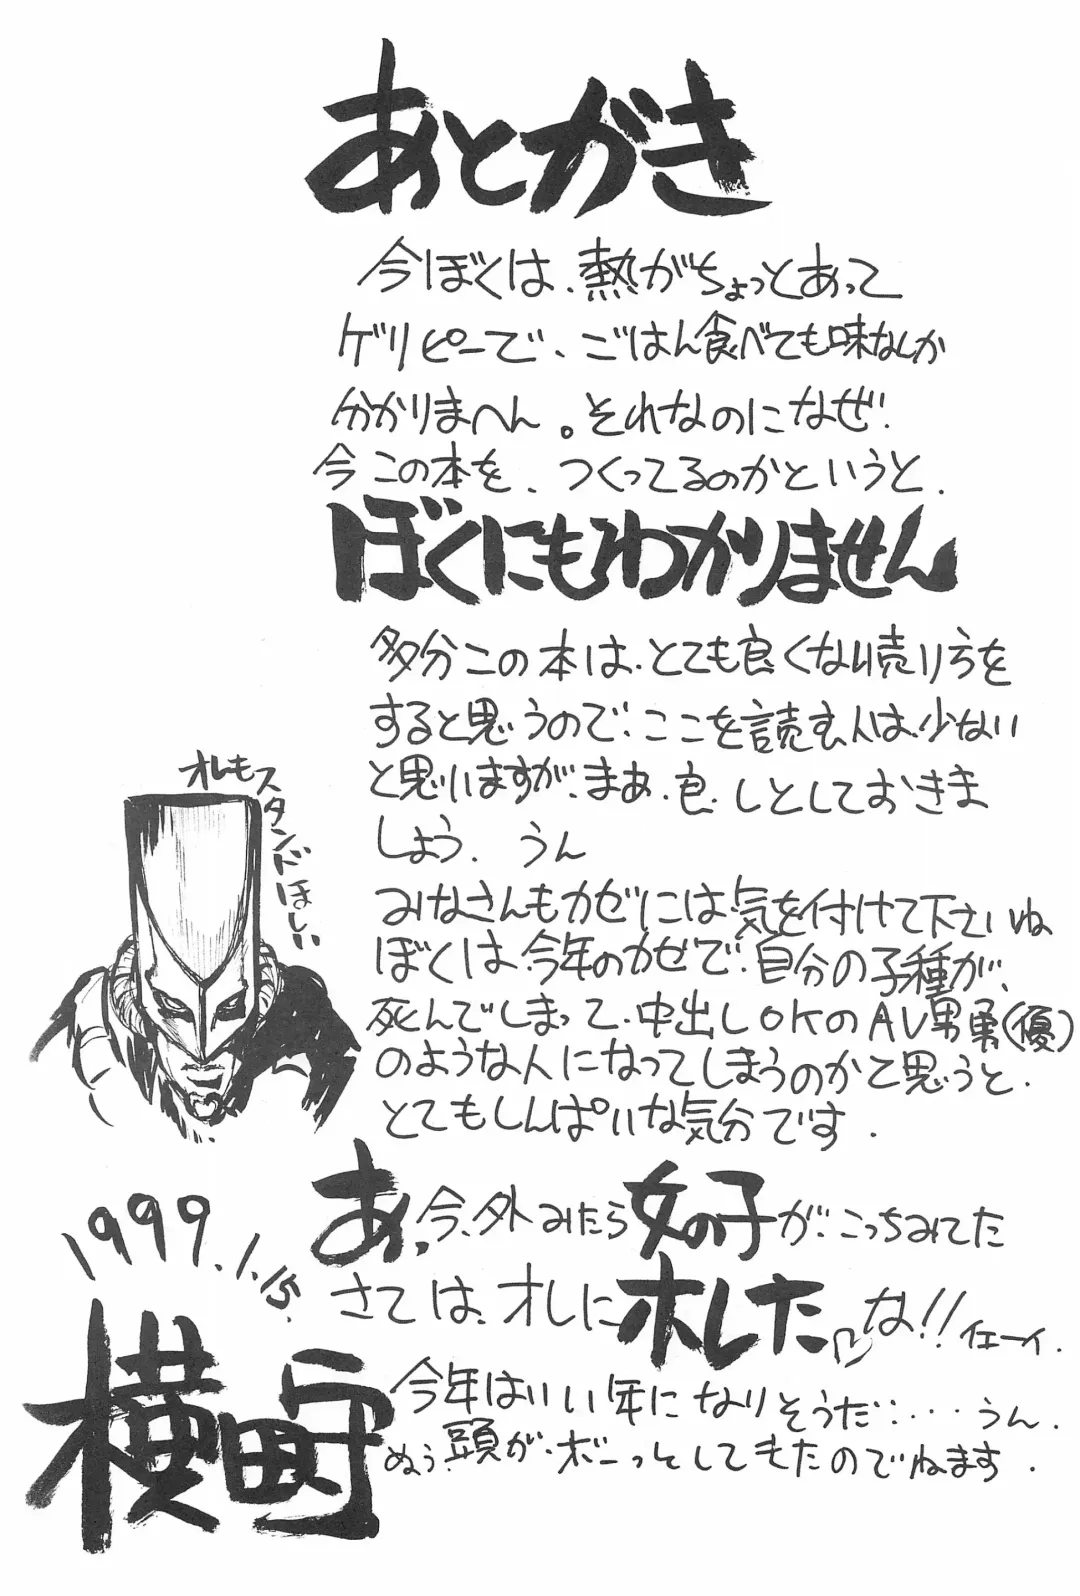 あとがき
今ぼくは、熱がちょっとあって
ゲリピーで、ごはん食べても味なんか
分かりまへん。それなのになぜ!
今この本を、つくってるのかというと、
ぼくにもわかりません
多分この本は、とても良くない売り方を
すると思うので、ここを読む人は少ない
と思いますが、まあ、良しとしておきま
しょう。うん
みなさんもカゼには気を付けて下さいね
ぼくは、今年のカゼで、自分の子種が、
死んでしまって、中出しOKのAV男勇(優)
のような人になってしまうのかと思うと、
とてもしんぱいな気分です。
あ、今、外みたら女の子が、こっちみてた
さては、オレにホレたな!!イェーイ.
今年はいい年になりそうだ....うん.
ぬぅ頭が、ボーっとしてきたのでねます.
オレもスタンドほしい
1999.1.15.
横田守